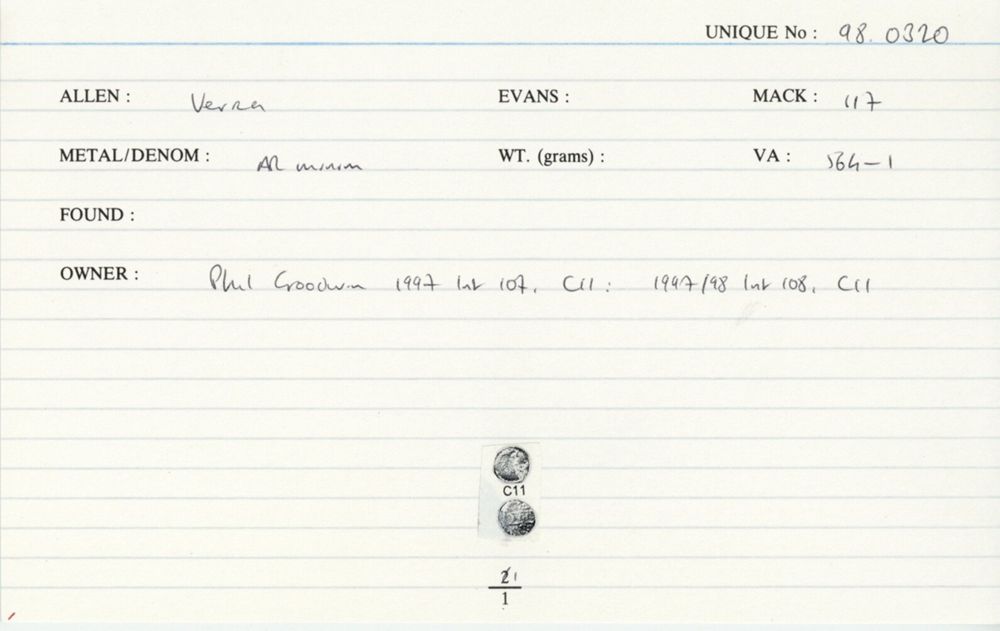 UNIQUE No : 98. 0320
ALLEN : Verica EVANS : MACK : 117
METAL/DENOM : AR minim WT. (grams) : VA : 564-1
FOUND :
OWNER : Phil Goodwin 1997 list 107, C11 : 1997/98 list 108, C11
C11
21
1